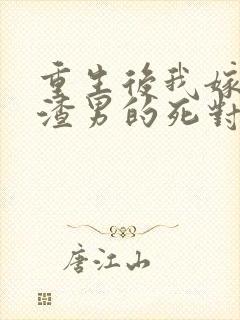 重生後我嫁
渣男的死對
唐江山